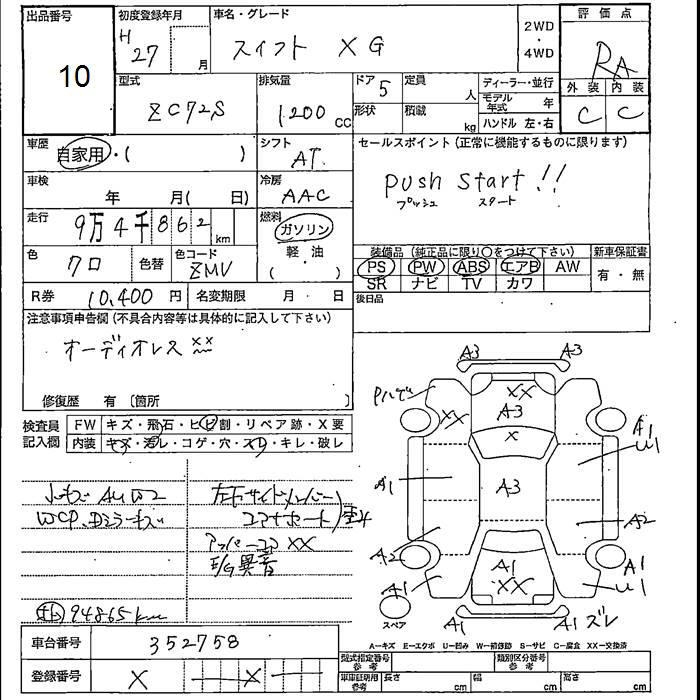 出品番号
10
初度登録年月
H
27
月
車名・グレード
スイフト XG
2WD
・
4WD
評価点
RA
外装 内装
C C
型式
ZC72S
排気量
1200 CC
ドア
5
定員
人
形状
積載
kg
ディーラー・並行
モデル年式
年
ハンドル 左・右
車歴
自家用・( )
シフト
AT
セールスポイント (正常に機能するものに限ります)
push start!!
プッシュ スタート
車検
年 月( 日)
冷房
AAC
走行
9万4千862 km
燃料
ガソリン
軽油
( )
色
クロ
色替
色コード
ZMV
装備品 (純正品に限り○をつけて下さい)
PS PW ABS エアB AW
SR ナビ TV カワ
新車保証書
有・無
R券
10,400 円
名変期限
月 日
後日品
注意事項申告欄 (不具合内容等は具体的に記入して下さい)
オーディオレス xx
修復歴 有 〔箇所 〕
検査員
記入欄
FW キズ・飛石・ヒビ割・リペア跡・X要
内装 キズ・汚レ・コゲ・穴・スレ・キレ・破レ
WCP、Dミラーキズ
左右サイドメンバー
コアサポート
アッパーコアXX
E/G異音
94865km
A3 A3
XX
A3
XX
X
A3
A1
A1
U1
A1
A2
A2
A1
XX
A1
A1
U1
スペア
A1
A1 ズレ
A-キズ E-エクボ U-凹み W-補修跡 S-サビ C-腐食 XX-交換済
車台番号
352758
型式指定番号
参考
類別区分番号
参考
登録番号
X X
車庫証明用
参考
長さ cm
幅 cm
高さ cm